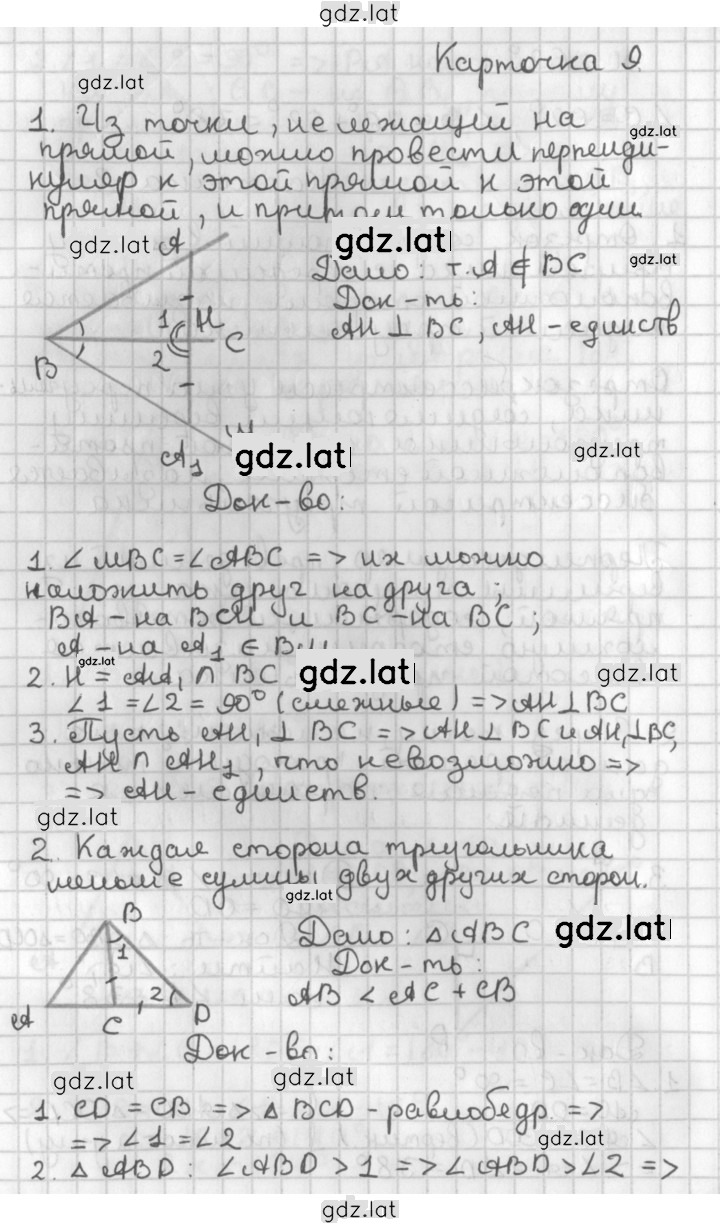 gdz.lat
Карточка 9.
gdz.lat
1. Из точки, не лежащей на
gdz.lat
прямой, можно провести перпенди-
куляр к этой прямой к этой
прямой, и притом только один.
gdz.lat
A
gdz.lat
Дано: т. A ∉ BC
gdz.lat
Док-ть:
1 H
AH ⊥ BC, AH - единств
B 2 C
A₁
gdz.lat
gdz.lat
Док-во:
1. ∠MBC = ∠ABC => их можно
наложить друг на друга;
BA - на BM и BC - на BC;
A - на A₁ ∈ BM
gdz.lat
2. H = AA₁ ∩ BC
gdz.lat
gdz.lat
∠1 = ∠2 = 90° (смежные) => AH ⊥ BC
3. Пусть AH₁ ⊥ BC => AH ⊥ BC и AH₁ ⊥ BC,
AH ∩ AH₁, что невозможно =>
=> AH - единств.
gdz.lat
2. Каждая сторона треугольника
меньше суммы двух других сторон.
gdz.lat
B
1
Дано: △ABC
gdz.lat
Док-ть:
AB < AC + CB
A C 2 D
Док-во:
gdz.lat
gdz.lat
1. CD = CB => △BCD - равнобедр. =>
=> ∠1 = ∠2
gdz.lat
2. △ABD: ∠ABD > 1 => ∠ABD > ∠2 =>
gdz.lat